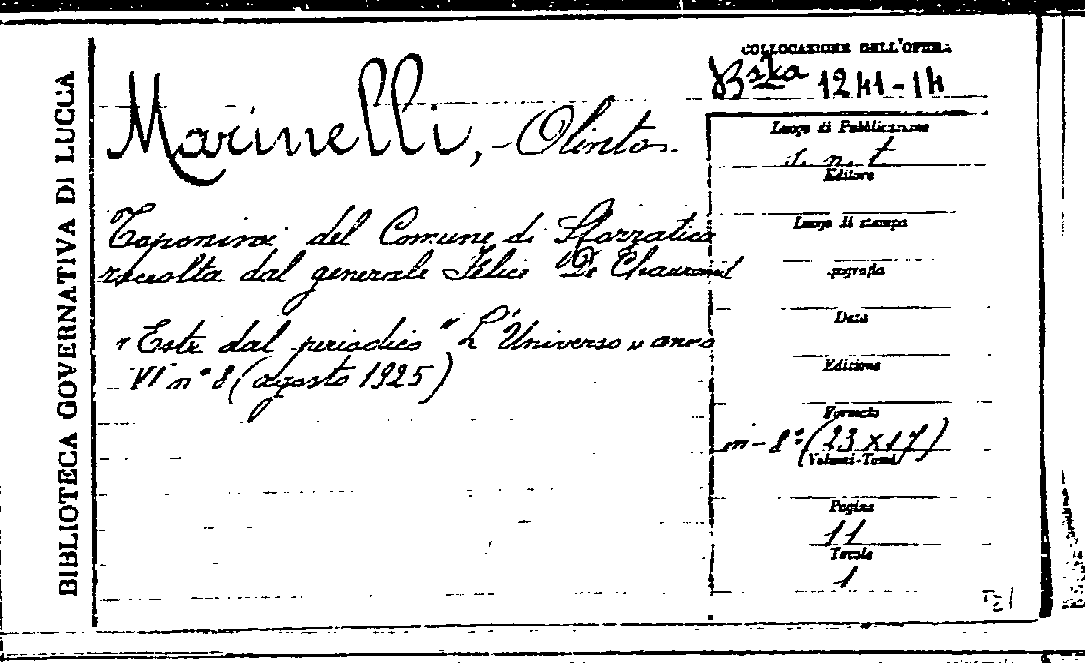 BIBLIOTECA GOVERNATIVA DI LUCCA
Marinelli, - Olinto.
Toponimi del Comune di Sforzatica
raccolta dal generale Felice De Chaurand
" Estr. dal periodico " L'Universo " anno
VI n° 8 (agosto 1925)
COLLOCAZIONE DELL'OPERA
Bsta 1241-14
Luogo di Pubblicazione
s. n. t.
Editore
Luogo di stampa
Tipografia
Data
Edizione
Formato
in-8° (23 x 17)
Volumi-Tomi
Pagine
11
Tavole
1